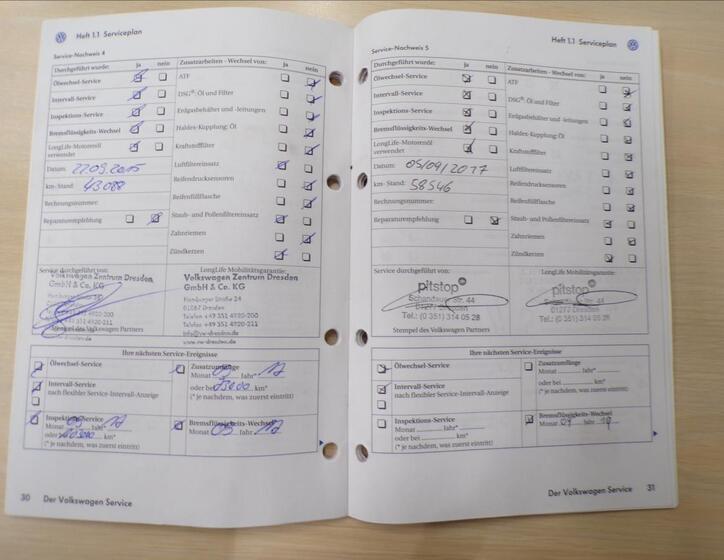 Heft 1.1 Serviceplan
Service-Nachweis 4
Durchgeführt wurde: ja nein
Ölwechsel-Service
Intervall-Service
Inspektions-Service
Bremsflüssigkeits-Wechsel
LongLife-Motorenöl
verwendet
Datum: 22.09.2015
km-Stand: 43088
Rechnungsnummer:
Reparaturempfehlung
Zusatzarbeiten - Wechsel von: ja nein
ATF
DSG®: Öl und Filter
Erdgasbehälter und -leitungen
Haldex-Kupplung: Öl
Kraftstofffilter
Luftfiltereinsatz
Reifendrucksensoren
Reifenfüllflasche
Staub- und Pollenfiltereinsatz
Zahnriemen
Zündkerzen
Service durchgeführt von:
Volkswagen Zentrum Dresden
GmbH & Co. KG
Hamburger Straße 24
01067 Dresden
Telefon +49 351 4920-200
Telefax +49 351 4920-211
Stempel des Volkswagen Partners
LongLife Mobilitätsgarantie:
Volkswagen Zentrum Dresden
GmbH & Co. KG
Hamburger Straße 24
01067 Dresden
Telefon +49 351 4920-200
Telefax +49 351 4920-211
info@vw-dresden.de
www.vw-dresden.de
Ihre nächsten Service-Ereignisse
Ölwechsel-Service
Intervall-Service
nach flexibler Service-Intervall-Anzeige
Inspektions-Service
Monat 09 Jahr* 17
oder bei km*
(* je nachdem, was zuerst eintritt)
Zusatzumfänge
Monat Jahr* 17
oder bei km*
(* je nachdem, was zuerst eintritt)
Bremsflüssigkeits-Wechsel
Monat 09 Jahr 17
30 Der Volkswagen Service
Heft 1.1 Serviceplan
Service-Nachweis 5
Durchgeführt wurde: ja nein
Ölwechsel-Service
Intervall-Service
Inspektions-Service
Bremsflüssigkeits-Wechsel
LongLife-Motorenöl
verwendet
Datum: 05/09/2017
km-Stand: 58546
Rechnungsnummer:
Reparaturempfehlung
Zusatzarbeiten - Wechsel von: ja nein
ATF
DSG®: Öl und Filter
Erdgasbehälter und -leitungen
Haldex-Kupplung: Öl
Kraftstofffilter
Luftfiltereinsatz
Reifendrucksensoren
Reifenfüllflasche
Staub- und Pollenfiltereinsatz
Zahnriemen
Zündkerzen
Service durchgeführt von:
pitstop
Schandauer Str. 44
01277 Dresden
Tel.: (0 351) 314 05 28
Stempel des Volkswagen Partners
LongLife Mobilitätsgarantie:
pitstop
Schandauer Str. 44
01277 Dresden
Tel.: (0 351) 314 05 28
Ihre nächsten Service-Ereignisse
Ölwechsel-Service
Intervall-Service
nach flexibler Service-Intervall-Anzeige
Inspektions-Service
Monat Jahr*
oder bei km*
(* je nachdem, was zuerst eintritt)
Zusatzumfänge
Monat Jahr*
oder bei km*
(* je nachdem, was zuerst eintritt)
Bremsflüssigkeits-Wechsel
Monat 09 Jahr 19
Der Volkswagen Service 31